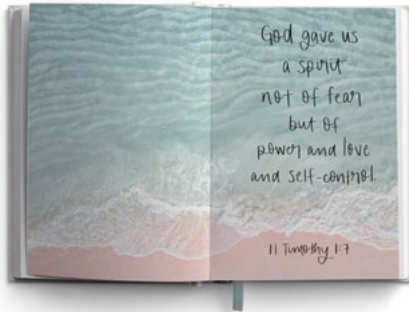 God gave us
a spirit
not of fear
but of
power and love
and self-control.
11 Timothy 1:7